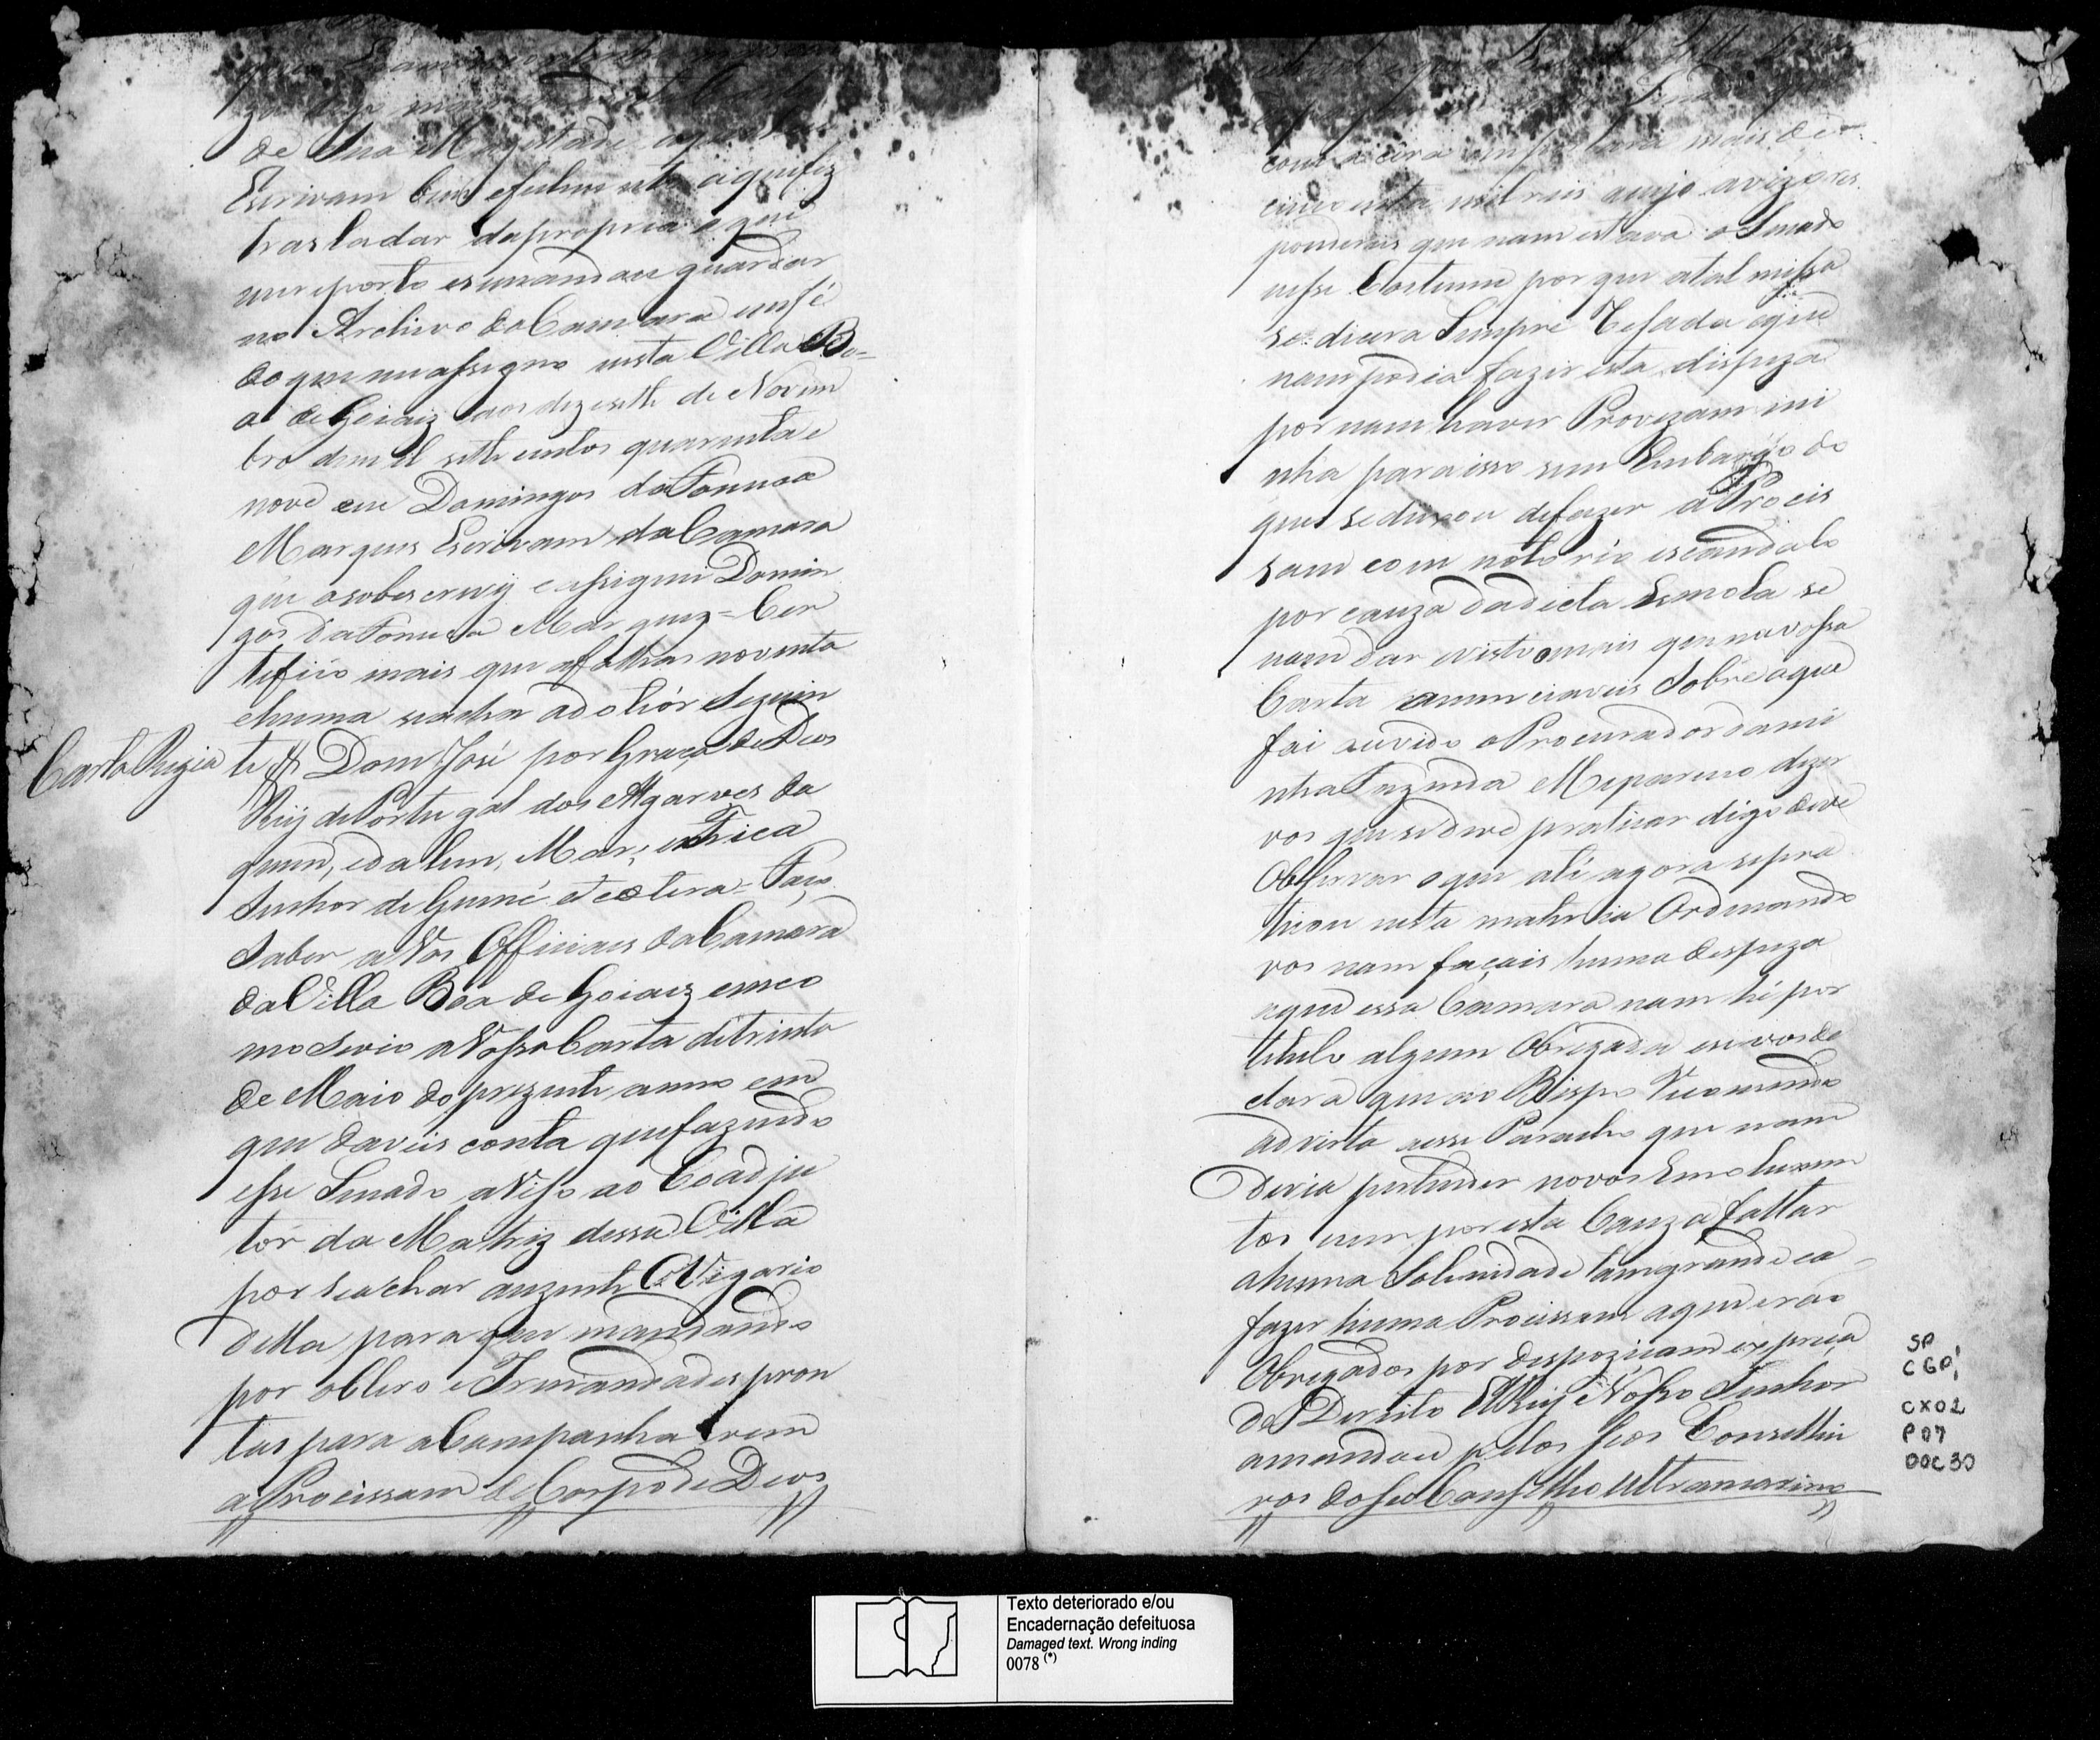 de Sua Magestade
Escrivam bem efielmente aquifiz
trasladar dapropria aque
me reporto esemandou guardar
no Archivo daCamara emfé
doque meassigno nesta Villa Bo-
a de Goiaiz aos dezesette de Novem
bro demil sette centos quarenta e
nove eu Domingos daFonseca
Marques Escrivam daCamara
que osobescrevy eassignei Domin
gos daFonseca Marquez = Cer
tefico mais que afolhas noventa
ehuma seacha adothiór seguin
Carta Regia
te // Dom José por Graça de Deos
Reÿ dePortugal dos Algarves da
quem, edalem, Mar, em Africa
Senhor de Guiné etcetera = Faço
Saber avós Officiaes daCamara
daVilla Bôa de Goiaiz emco
mo sevio aVossaCarta detrinta
de Maio do prezente anno em
que daveis conta quefazendo
esse Senado aviso ao Coadju
tôr da Matriz dessa Villa
por seachar auzente OVigario
della para que mandando
por oClero e Irmandades pron
tas para aCompanharem
aProcissam deCorpo de Deos
com acera emportava mais de
cincoenta mil reis cujo avizo res
pondereis que nam estava o Senado
nesse Costume por que atal missa
se dicera Sempre Resada eque
nam podia fazer esta despeza
por nam haver Provezam mi
nha paraisso sem Embargo do
que sedeixou defazer a Procis
sam com notorio escandalo
por cauza dadicta Esmola se
nam dar evisto omais que navossa
Carta anunciaveis Sobre oque
foi ouvido oProcurador dami
nhaFazenda Mepareceo dizer
vos que sedeve praticar digo deve
Observar oque até agora sepra
ticou nesta materia Ordenando
vos nam façais huma despeza
aque essa Camara nam hé por
titulo algum Obregada esevosde
clara que ao Bispo Recomendo
advirta aesse Paracho que nam
devia pertender novos Emolumen
tos nem por esta Cauza faltar
ahuma Solenidade tamgrande ea
fazer huma Procissam aque erao
Obregados por despoziçam expreça
de Dereito ElReÿ Nosso Senhor
amandou pelos seos Conselhei
ros doSeoConselho Ultramarino
SP
CGP,
CX02
P07
DOC30
Texto deteriorado e/ou
Encadernação defeituosa
Damaged text. Wrong inding
0078 (*)